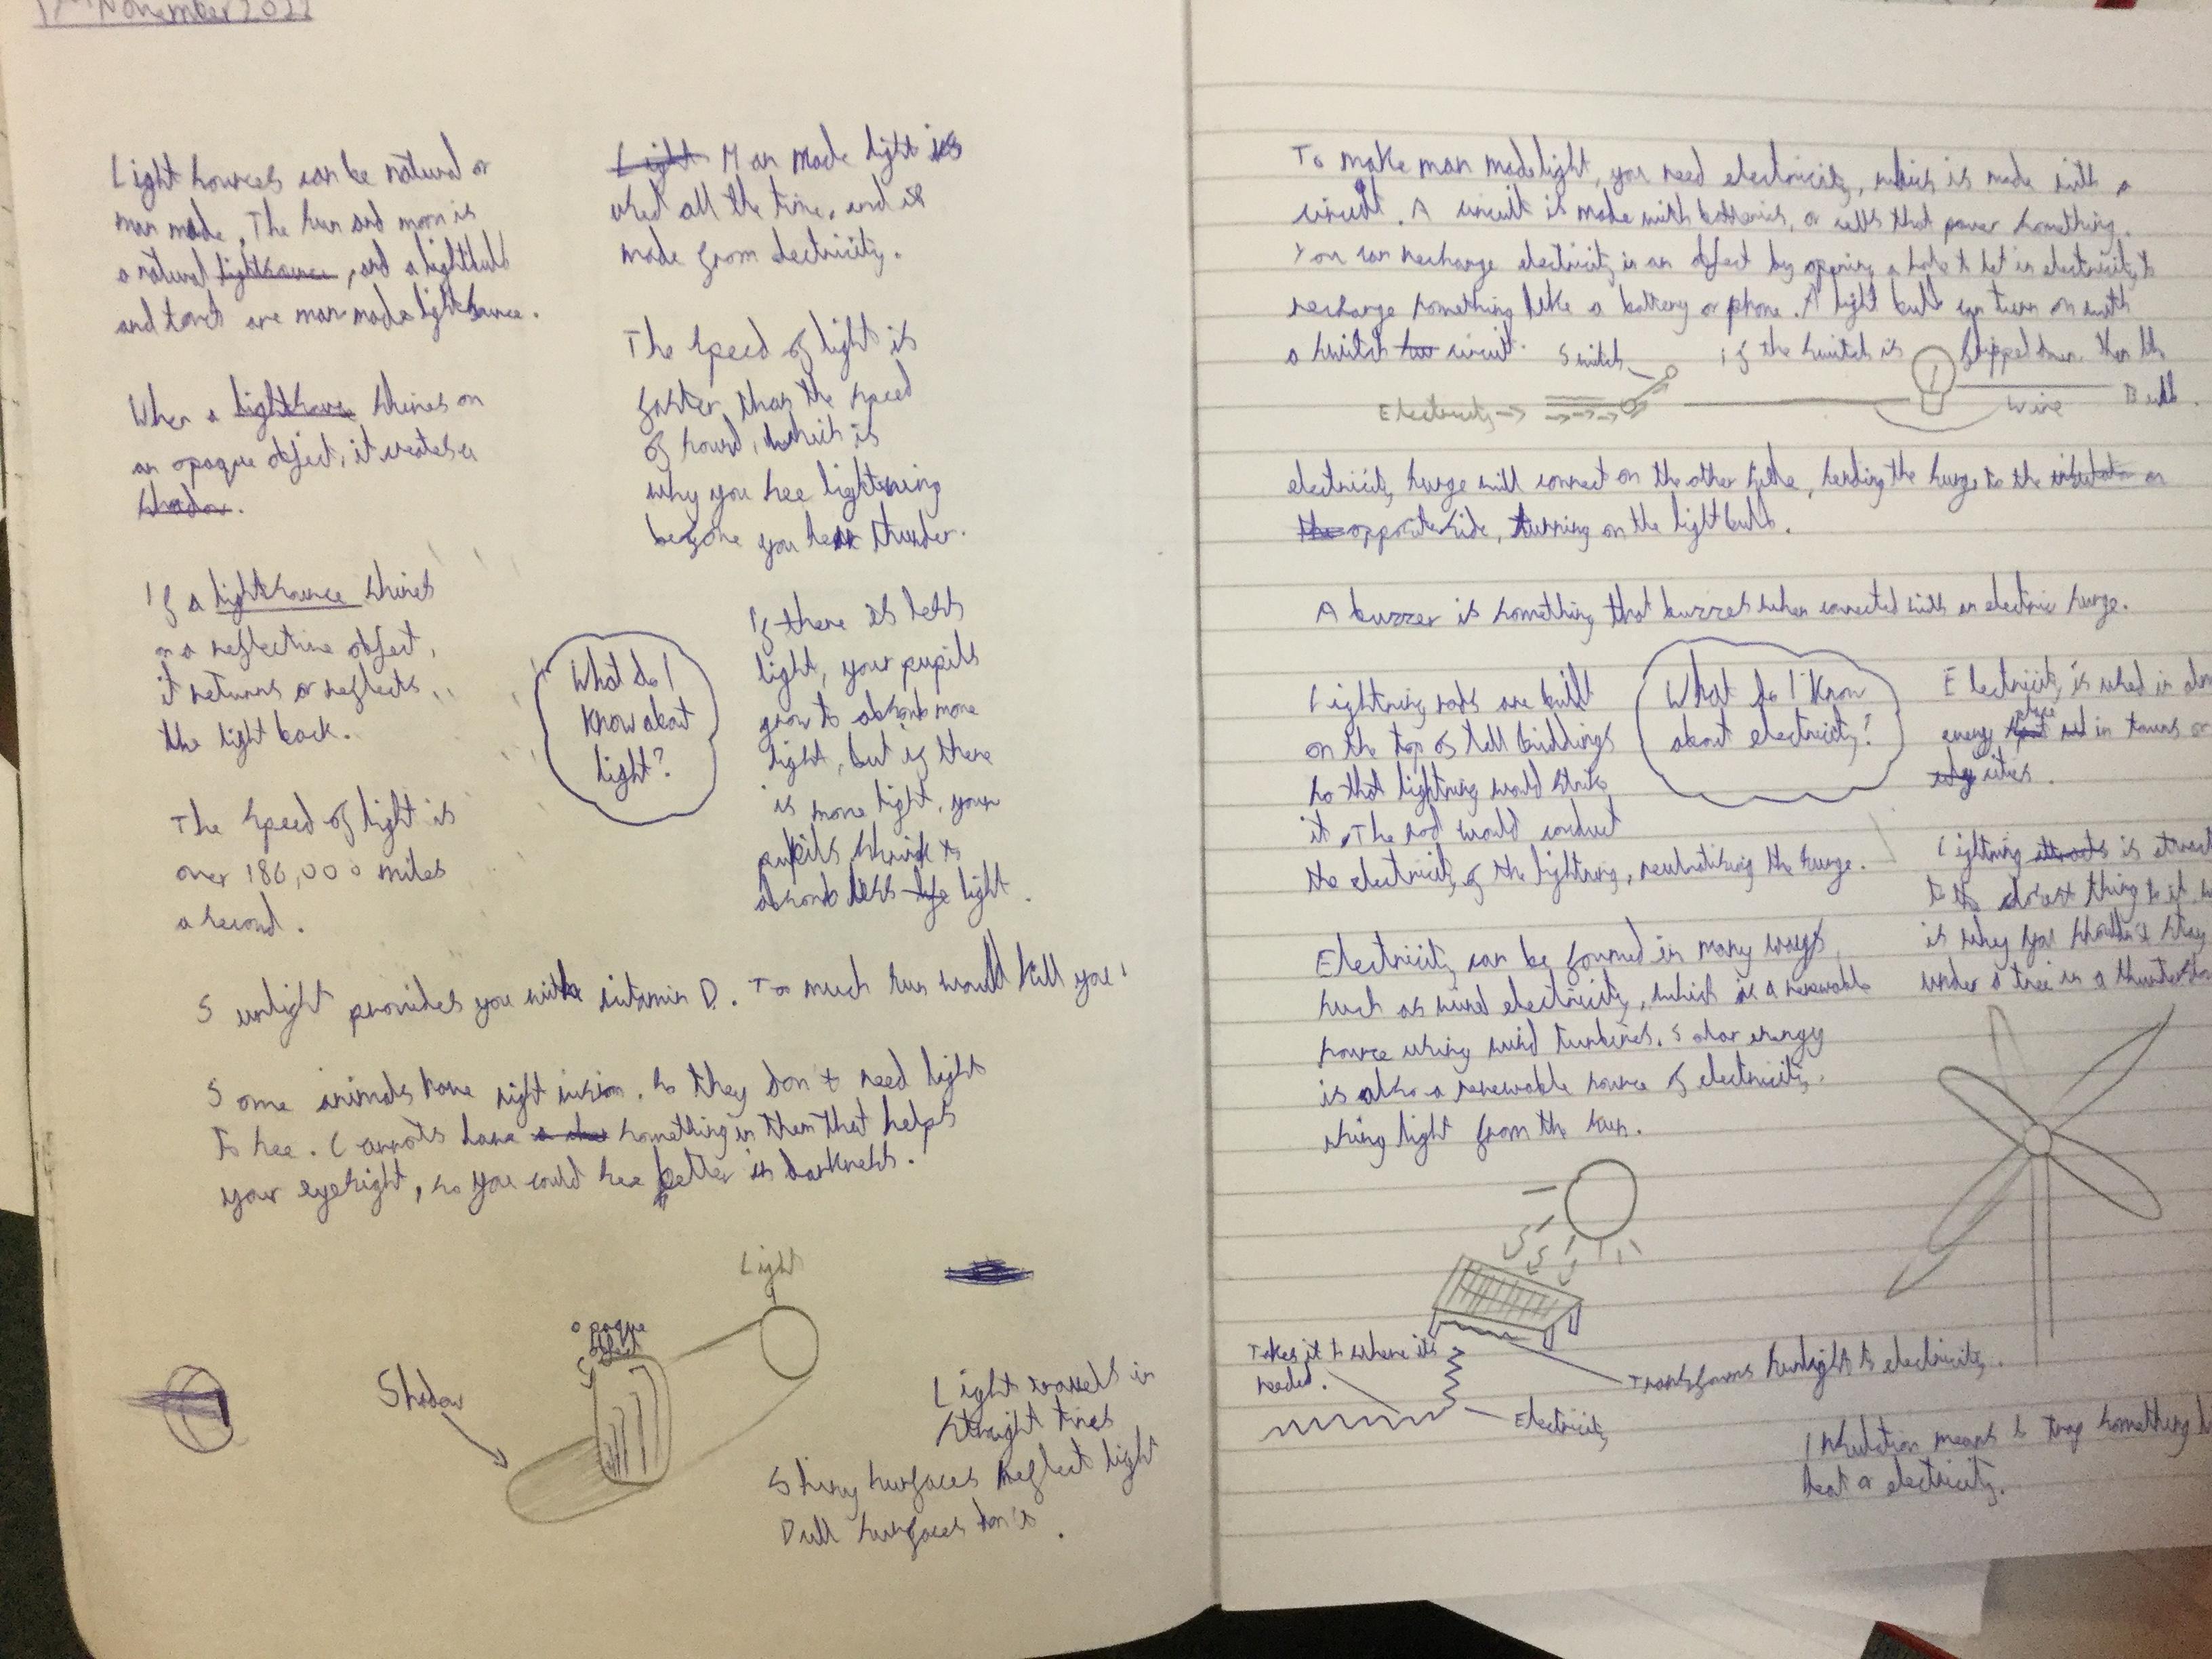 17th November 2022
Light sources can be natural or
man made. The sun and moon is
a natural lightsource, and a lightbulb
and torch are man made lightsource.
When a lightsource shines on
an opaque object, it creates a
shadow.
If a lightsource shines
on a reflective object,
it returns or reflects
the light back.
The speed of light is
over 186,000 miles
a second.
Light Man made light is
used all the time, and is
made from electricity.
The speed of light is
faster than the speed
of sound, which is
why you see lightening
before you hear thunder.
What do I
know about
light?
If there is less
light, your pupils
grow to absorb more
light, but if there
is more light, your
pupils shrink to
absorb less light.
Sunlight provides you with vitamin D. To much sun would kill you!
Some animals have night vision, so they don't need light
to see. Carrots have something in them that helps
your eyesight, so you could see better in darkness.
Light
Opaque
object
Shadow
Light travels in
straight lines
Shiny surfaces reflect light
Dull surfaces don't.
To make man made light, you need electricity, which is made with a
circuit. A circuit is made with batteries, or cells that power something.
You can recharge electricity in an object by opening a hole to let in electricity to
recharge something like a battery or phone. A light bulb can turn on with
a switch circuit. Switch If the switch is flipped down then the
Electricity Wire Bulb.
electricity surge will connect on the other side, sending the surge to the on
the opposite side, turning on the lightbulb.
A buzzer is something that buzzes when connected with an electric surge.
Lightning rods are built
on the top of tall buildings
so that lightning would strike
it. The rod would conduct
the electricity of the lightning, neutralising the surge.
What do I know
about electricity?
Electricity is used in
every place in towns or
cities.
Lightning attracts is
to the closest thing to it
is why you shouldn't stay
under a tree in a
Electricity can be formed in many ways
such as wind electricity, which is a renewable
source using wind turbines. Solar energy
is also a renewable source of electricity,
using light from the sun.
Takes it to where its
needed.
Transforms sunlight to electricity.
Electricity
Insulation means to trap something
heat or electricity.